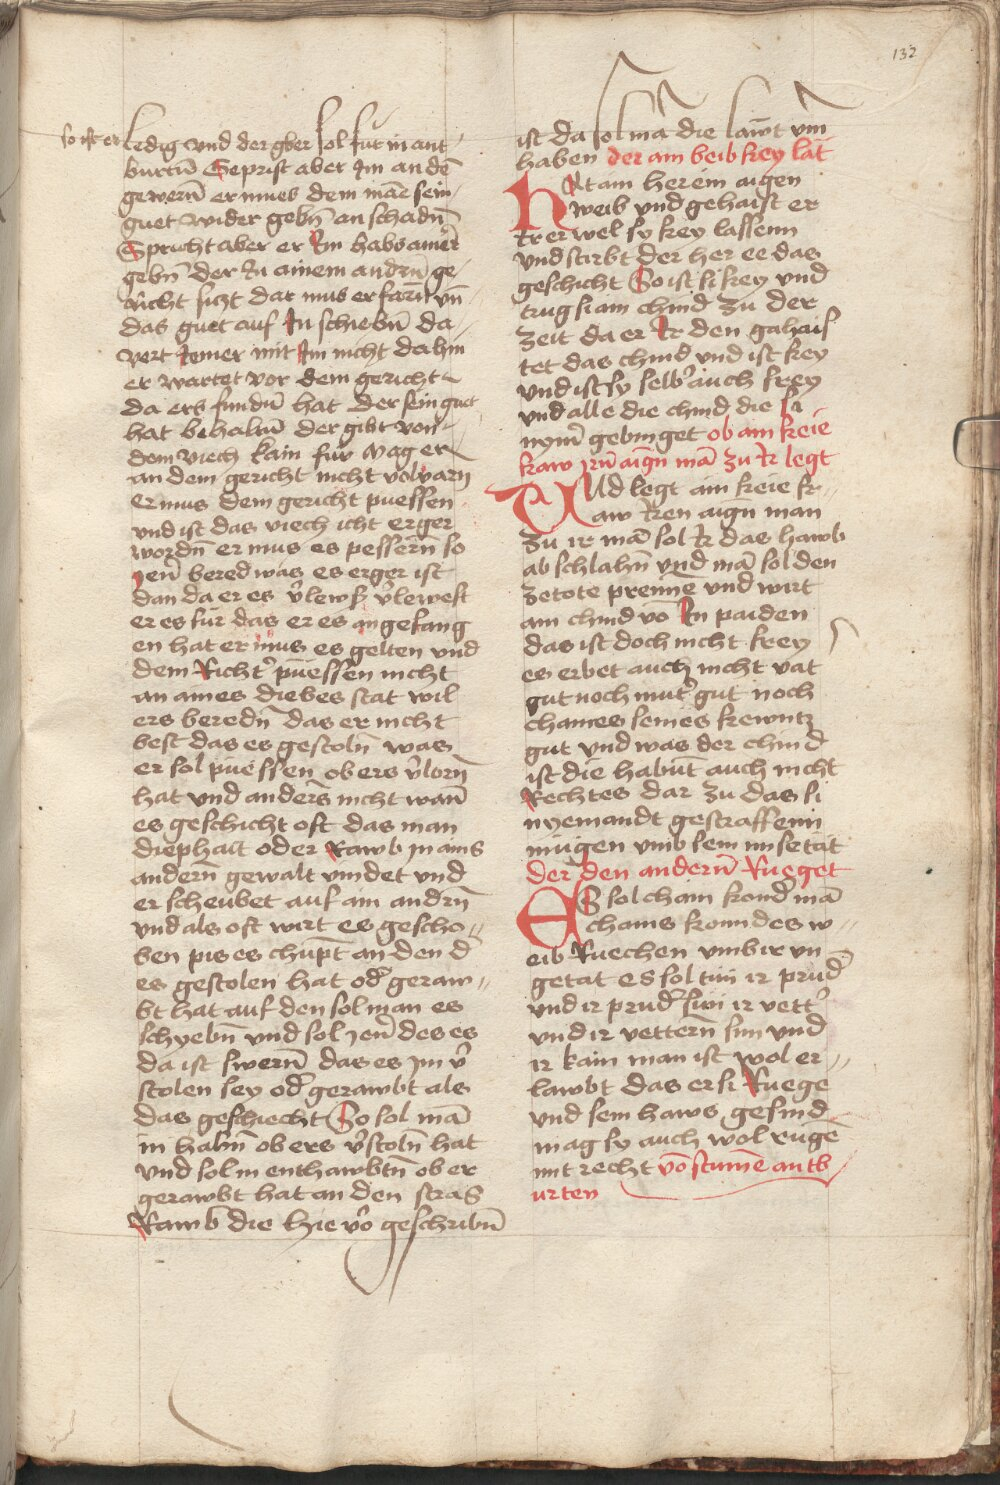 132
so ist er ledig vnd der gber sol fur in ant
burtn̄ Geprist aber Im an dē
gewern̄ er mues dem māe sein
guet wider gebn̄ an schadn̄
Spricht aber er Im habs ainer
gebn̄ der In ainem andrn̄ ge
richt siczt dar mus er farn̄ vn̄
das guet auf In schiebn̄ da
vert Iener mit Im nicht dahin
er wartet vor dem gericht
da ers fundn̄ hat der sein guet
hat behabtn̄ der gibt von
dem viech kain fur Mag er
an dem gericht nicht volvarn
er mus dem gericht puessen
vnd ist das viech icht erger
wordn̄ er mus es pessern̄ so
Jen̄ bered was es erger ist
dan da er es v̄lews v̄lewest
er es fur das er es angefang
en hat er mus es gelten vnd
dem Richt̉ puessen nicht
an aines diebes stat wil
ers beredn̄ das er nicht
best das es gestoln̄ was
er sol puessen ob ers v̄lorn̄
hat vnd anders nicht wan̄
es geschicht oft das man
diephait oder Rawb in ains
andern̄ gewalt vindet vnd
er scheubet auf ain andrn̄
vnd als oft wirt es gescho
ben pis es chūpt an den d̉
es gestolen hat od̉ geraw
bt hat auf den sol man es
schyebn̄ vnd sol Jen̄ des es
da ist swern̄ das es Im v̉
stolen sey od̉ gerawbt als
das geschiecht So sol mā
in hahn̄ ob ers v̉stoln̄ hat
vnd sol in enthawbtn̄ ob er
gerawbt hat an den stras
Rawb die hie vō geschribn̄
ist da sol mā die lawt vm
haben der ain beib frey lat
Hat ain herr ein aigen
weib vnd gehaist er
Ir er wel sy frey lassenn
vnd stirbt der her ee das
geschicht So ist si frey vnd
trug si ain chind zu der
zeit da er Ir den gahais
tet das chind vnd ist frey
vnd ist sy selb̉ auch frey
vnd alle die chind die si
nym̄ gebinget ob ain freie
fraw irn̄ aign̄ mā zu Ir legt
Vnd legt ain freie fr
aw Iren aign̄ man
zu ir mā sol Ir das hawb
ab schlahn̄ vnd mā sol den
ze tote prennē vnd wirt
ain chind vō In paiden
das ist doch nicht frey
es erbet auch nicht vat
gut noch mut̉ gut noch
chaines seines frewntz
gut vnd was der chind
ist die habnt̄ auch nicht
Rechtes dar zu das si
nyemandt gestraffenn
mugen vmb sein missetat
der den andern̄ Rueget
Es sol chain frond̉ mā
chains fromdes w
eib Ruechen vmb ir vn
getat es sol tun ir prud̉
vnd ir prud̉ sun ir vett̉
vnd ir vettern̄ sun vnd
ir kain man ist wol er
lawbt das er si Ruege
vnd sein haws gesind
mag sy auch wol rugē
mit recht vō stumē antb
urten